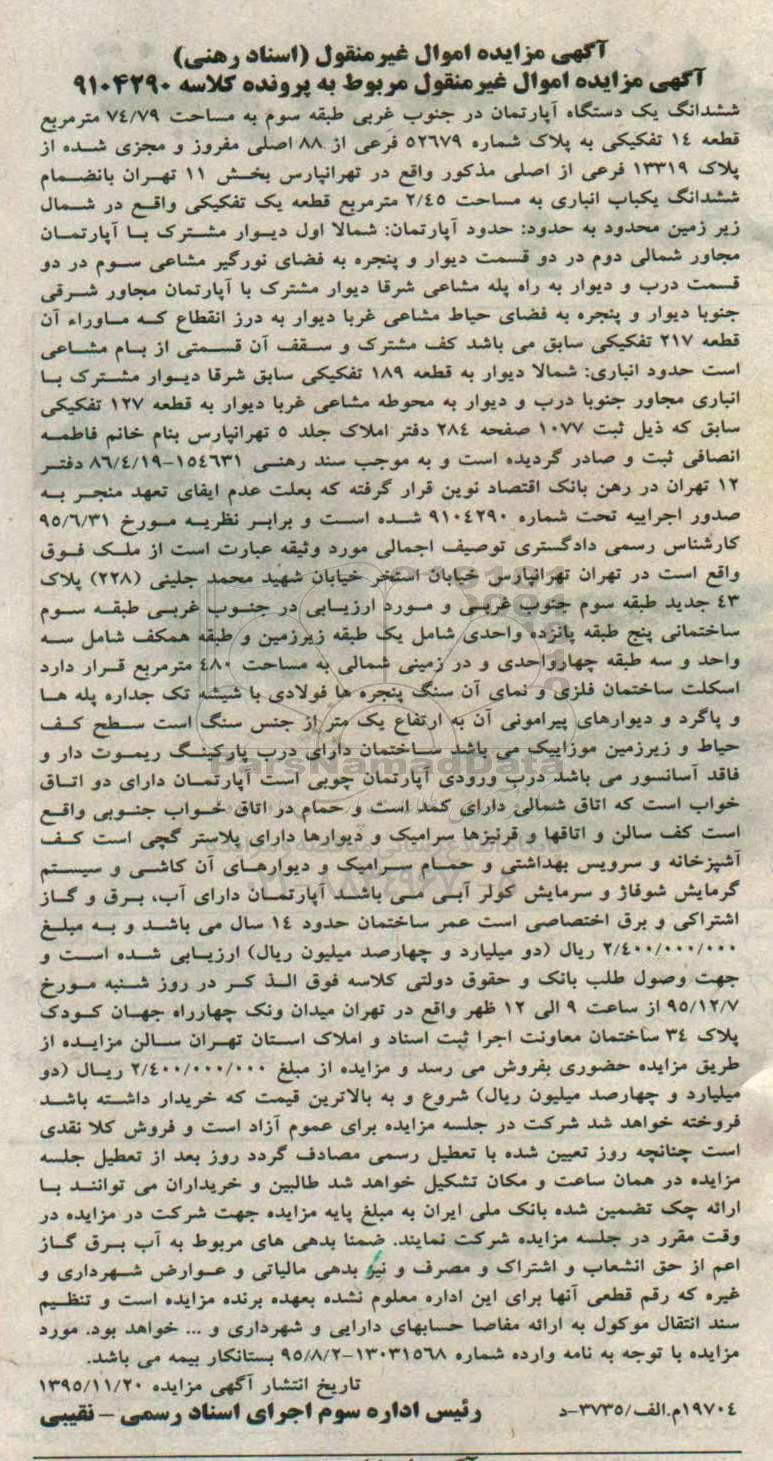 آگهی مزایده اموال غیرمنقول (اسناد رهنی)
آگهی مزایده اموال غیرمنقول مربوط به پرونده کلاسه ۹۱۰۴۲۹۰
ششدانگ یک دستگاه آپارتمان در جنوب غربی طبقه سوم به مساحت ۷٤/۷۹ مترمربع
قطعه ۱٤ تفکیکی به پلاک شماره ٥۲٦۷۹ فرعی از ۸۸ اصلی مفروز و مجزی شده از
پلاک ۱۳۳۱۹ فرعی از اصلی مذکور واقع در تهرانپارس بخش ۱۱ تهران بانضمام
ششدانگ یکباب انباری به مساحت ۲/٤٥ مترمربع قطعه یک تفکیکی واقع در شمال
زیر زمین محدود به حدود: حدود آپارتمان: شمالا اول دیوار مشترک با آپارتمان
مجاور شمالی دوم در دو قسمت دیوار و پنجره به فضای نورگیر مشاعی سوم در دو
قسمت درب و دیوار به راه پله مشاعی شرقا دیوار مشترک با آپارتمان مجاور شرقی
جنوبا دیوار و پنجره به فضای حیاط مشاعی غربا دیوار به درز انقطاع که ماوراء آن
قطعه ۲۱۷ تفکیکی سابق می باشد کف مشترک و سقف آن قسمتی از بام مشاعی
است حدود انباری: شمالا دیوار به قطعه ۱۸۹ تفکیکی سابق شرقا دیوار مشترک با
انباری مجاور جنوبا درب و دیوار به محوطه مشاعی غربا دیوار به قطعه ۱۲۷ تفکیکی
سابق که ذیل ثبت ۱۰۷۷ صفحه ۲۸٤ دفتر املاک جلد ٥ تهرانپارس بنام خانم فاطمه
انصافی ثبت و صادر گردیده است و به موجب سند رهنی ۱٥٤٦۳۱-۸٦/٤/۱۹ دفتر
۱۲ تهران در رهن بانک اقتصاد نوین قرار گرفته که بعلت عدم ایفای تعهد منجر به
صدور اجراییه تحت شماره ۹۱۰٤۲۹۰ شده است و برابر نظریه مورخ ۹٥/٦/۳۱
کارشناس رسمی دادگستری توصیف اجمالی مورد وثیقه عبارت است از ملک فوق
واقع است در تهران تهرانپارس خیابان استخر خیابان شهید محمد جلینی (۲۲۸) پلاک
٤۳ جدید طبقه سوم جنوب غربی و مورد ارزیابی در جنوب غربی طبقه سوم
ساختمانی پنج طبقه پانزده واحدی شامل یک طبقه زیرزمین و طبقه همکف شامل سه
واحد و سه طبقه چهارواحدی و در زمینی شمالی به مساحت ٤۸۰ مترمربع قرار دارد
اسکلت ساختمان فلزی و نمای آن سنگ پنجره ها فولادی با شیشه تک جداره پله ها
و پاگرد و دیوارهای پیرامونی آن به ارتفاع یک متر از جنس سنگ است سطح کف
حیاط و زیرزمین موزاییک می باشد ساختمان دارای درب پارکینگ ریموت دار و
فاقد آسانسور می باشد درب ورودی آپارتمان چوبی است آپارتمان دارای دو اتاق
خواب است که اتاق شمالی دارای کمد است و حمام در اتاق خواب جنوبی واقع
است کف سالن و اتاقها و قرنیزها سرامیک و دیوارها دارای پلاستر گچی است کف
آشپزخانه و سرویس بهداشتی و حمام سرامیک و دیوارهای آن کاشی و سیستم
گرمایش شوفاژ و سرمایش کولر آبی می باشد آپارتمان دارای آب، برق و گاز
اشتراکی و برق اختصاصی است عمر ساختمان حدود ۱٤ سال می باشد و به مبلغ
۲/٤۰۰/۰۰۰/۰۰۰ ریال (دو میلیارد و چهارصد میلیون ریال) ارزیابی شده است و
جهت وصول طلب بانک و حقوق دولتی کلاسه فوق الذ کر در روز شنبه مورخ
۹٥/۱۲/۷ از ساعت ۹ الی ۱۲ ظهر واقع در تهران میدان ونک چهارراه جهان کودک
پلاک ۳٤ ساختمان معاونت اجرا ثبت اسناد و املاک استان تهران سالن مزایده از
طریق مزایده حضوری بفروش می رسد و مزایده از مبلغ ۲/٤۰۰/۰۰۰/۰۰۰ ریال (دو
میلیارد و چهارصد میلیون ریال) شروع و به بالاترین قیمت که خریدار داشته باشد
فروخته خواهد شد شرکت در جلسه مزایده برای عموم آزاد است و فروش کلا نقدی
است چنانچه روز تعیین شده با تعطیل رسمی مصادف گردد روز بعد از تعطیل جلسه
مزایده در همان ساعت و مکان تشکیل خواهد شد طالبین و خریداران می توانند با
ارائه چک تضمین شده بانک ملی ایران به مبلغ پایه مزایده جهت شرکت در مزایده در
وقت مقرر در جلسه مزایده شرکت نمایند. ضمنا بدهی های مربوط به آب برق گاز
اعم از حق انشعاب و اشتراک و مصرف و نیز بدهی مالیاتی و عوارض شهرداری و
غیره که رقم قطعی آنها برای این اداره معلوم نشده بعهده برنده مزایده است و تنظیم
سند انتقال موکول به ارائه مفاصا حسابهای دارایی و شهرداری و ... خواهد بود. مورد
مزایده با توجه به نامه وارده شماره ۱۳۰۳۱٥٦۸-۹٥/۸/۲ بستانکار بیمه می باشد.
تاریخ انتشار آگهی مزایده ۱۳۹٥/۱۱/۲۰
۱۹۷۰٤م.الف/۳۷۳٥-د رئیس اداره سوم اجرای اسناد رسمی - نقیبی
ParsNamadData